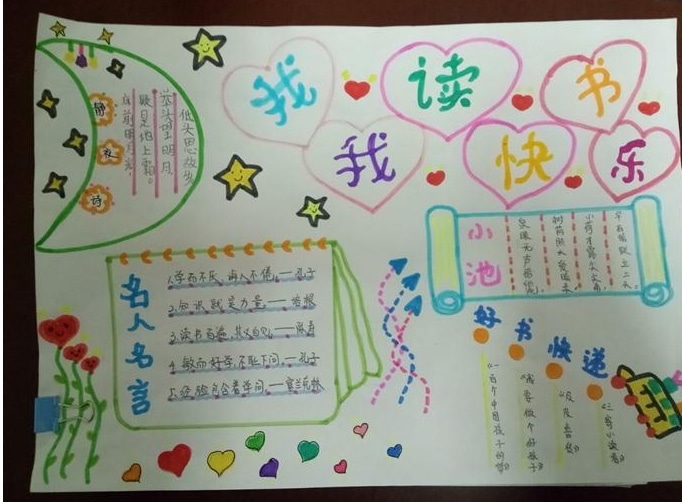 我读书
我快乐
静夜诗
床前明月光，
疑是地上霜。
举头望明月，
低头思故乡
小池
泉眼无声惜细流，
树荫照水爱晴柔
小荷才露尖尖角
早有蜻蜓立上头
名人名言
1.学而不厌，诲人不倦，——孔子
2.知识就是力量，——培根
3.读书百遍，其义自见，——
4.敏而好学，不耻下问，——孔子
5.经验包含着学问，——
好书快递
《一百个中国孩子的梦》
《我要做个好孩子》
《皮皮鲁传》